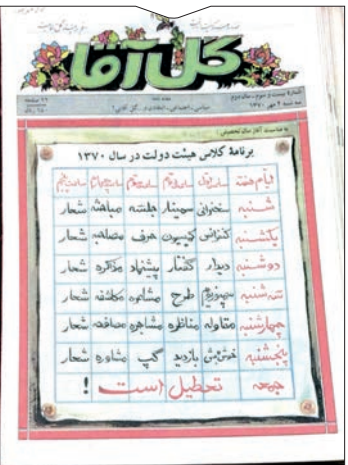 گل آقا
شماره بیست و سوم - سال دوم
سه شنبه ۲ مهر ۱۳۷۰
سیاسی، اجتماعی، انتقادی و... گل آقایی!
۱۶ صفحه
به مناسبت آغاز سال تحصیلی:
برنامهٔ کلاس هیئت دولت در سال ۱۳۷۰
ایام هفته ساعت اول ساعت دوم ساعت سوم ساعت چهارم ساعت پنجم
شنبه سخنرانی سمینار جلسه مباحثه شعار
یکشنبه کنفرانس کمیسیون حرف مصاحبه شعار
دوشنبه دیدار گفتار پیشنهاد مذاکره شعار
سه شنبه سمپوزیوم طرح مشاعره مکاشفه شعار
چهارشنبه مقاوله مناظره مشاجره مصافحه شعار
پنجشنبه خوش و بش بازدید گپ مشاوره شعار
جمعه تعطیل است !